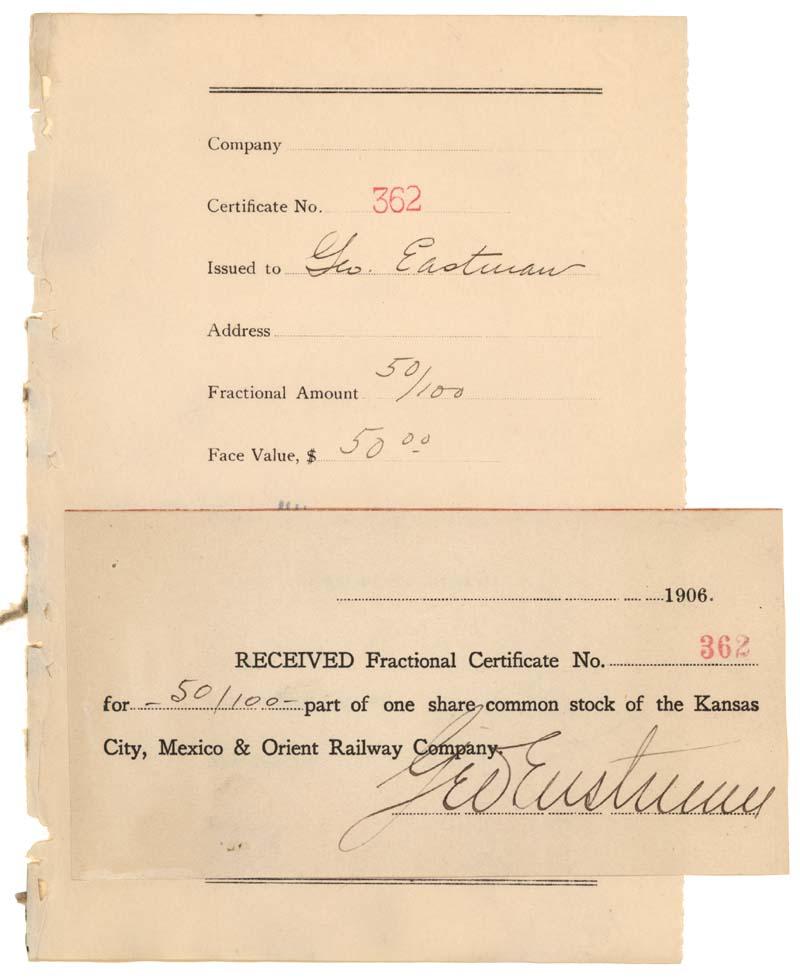 Company
Certificate No. 362
Issued to Geo. Eastman
Address
Fractional Amount 50/100
Face Value, $ 50 00
1906.
RECEIVED Fractional Certificate No. 362
for - 50/100 - part of one share common stock of the Kansas
City, Mexico & Orient Railway Company.
Geo Eastman